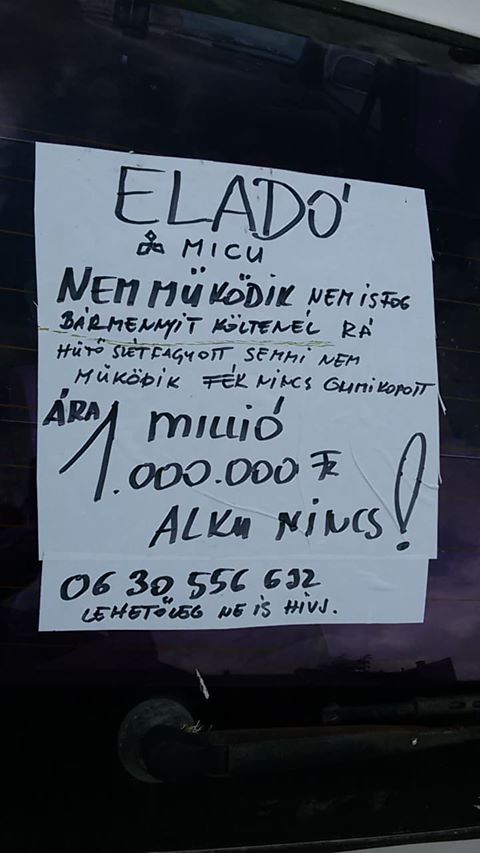 ELADÓ
MICU
NEM MŰKÖDIK NEM IS FOG
BÁRMENNYIT KÖLTENÉL RÁ
HŰTŐ SZÉTFAGYOTT SEMMI NEM
MŰKÖDIK FÉK NINCS GUMI KOPOTT
ÁRA 1 MILLIÓ
1.000.000 Ft
ALKU NINCS!
06 30 556 692
LEHETŐLEG NE IS HÍVJ.